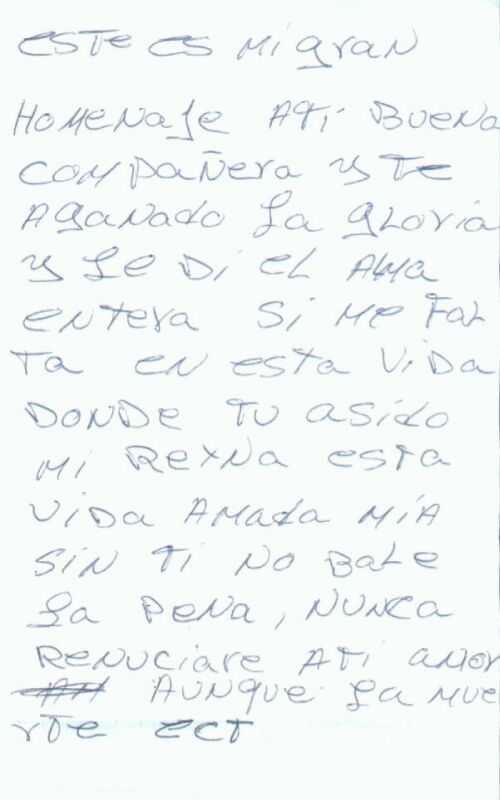 ESTE ES MI gRAN
HOMENAJE ATI BUENA
COMPAÑERA Y TE
AGANADO LA GLORIA
Y LE DI EL ALMA
ENTERA SI ME FAL
TA EN ESTA VIDA
DONDE TU ASIDO
MI REYNA ESTA
VIDA AMADA MÍA
SIN TI NO BALE
LA PENA, NUNCA
RENUCIARE ATI AMOR
AUNQUE LA MUE
RTE ECT